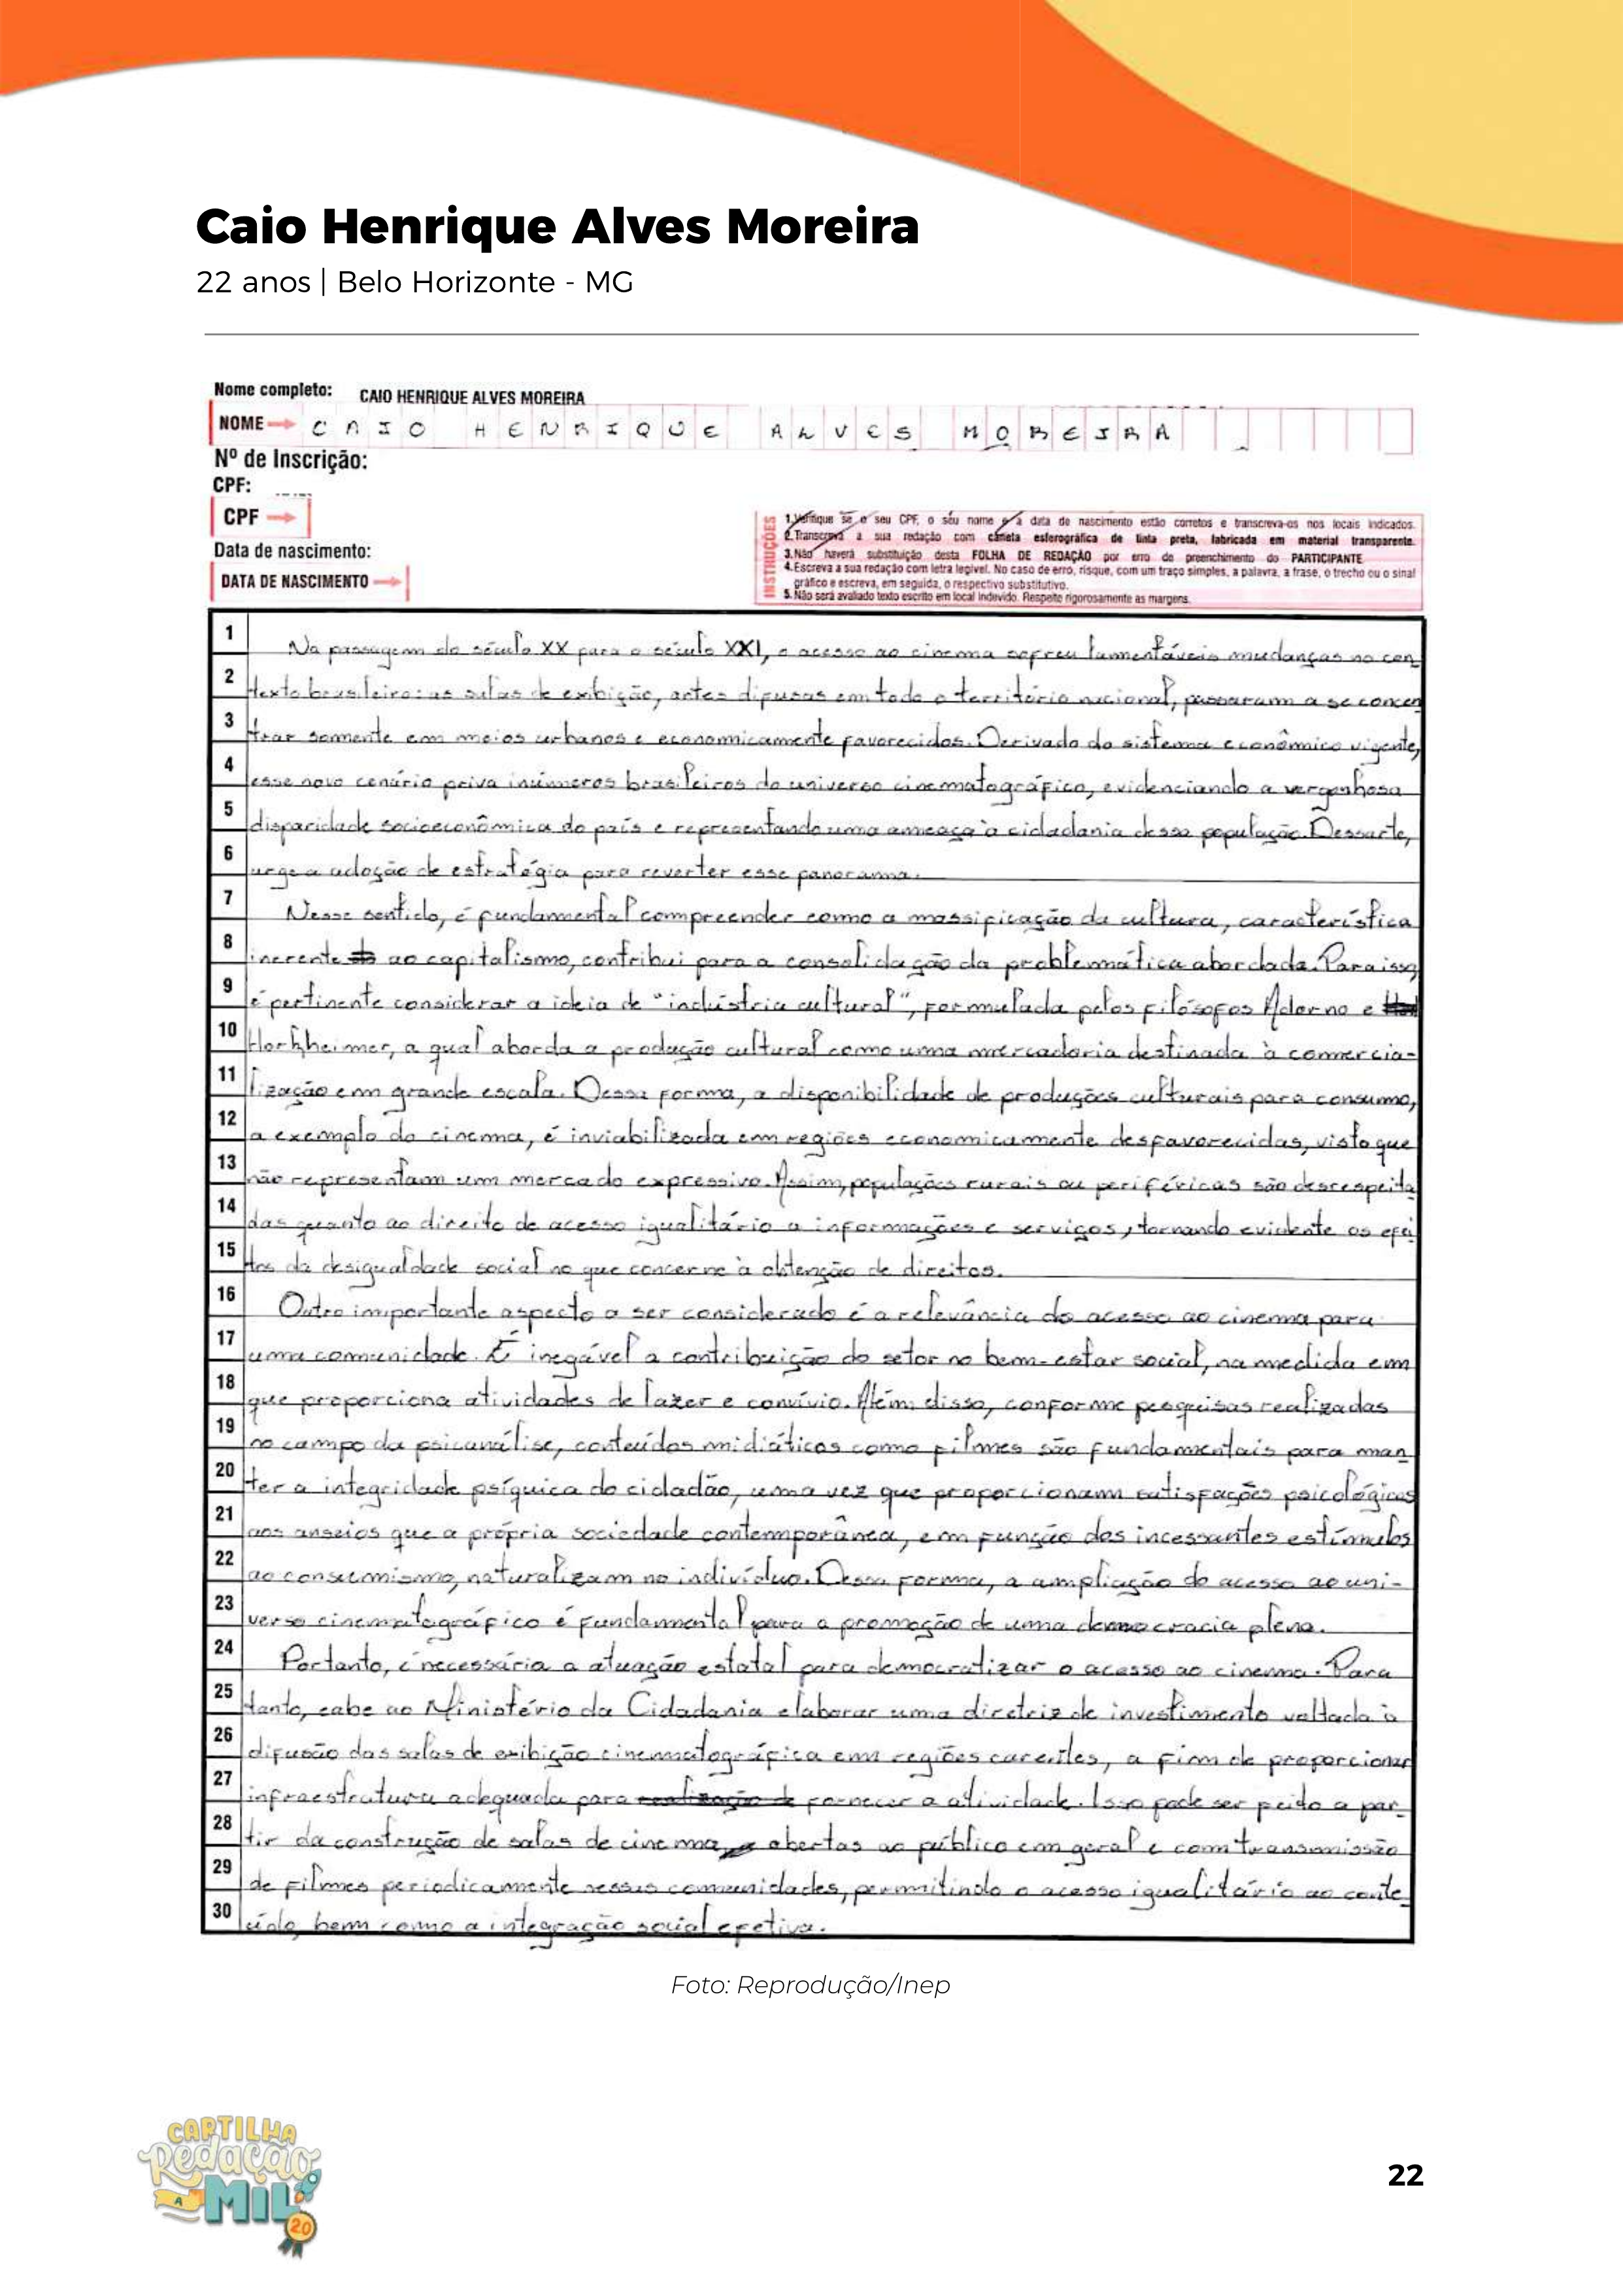 Caio Henrique Alves Moreira
22 anos | Belo Horizonte - MG
Nome completo: CAIO HENRIQUE ALVES MOREIRA
NOME CAIO HENRIQUE ALVES MOREIRA
Nº de Inscrição:
CPF:
CPF
Data de nascimento:
DATA DE NASCIMENTO
INSTRUÇÕES
1. Verifique se o seu CPF, o seu nome e a data de nascimento estão corretos e transcreva-os nos locais indicados.
2. Transcreva a sua redação com caneta esferográfica de tinta preta, fabricada em material transparente.
3. Não haverá substituição desta FOLHA DE REDAÇÃO por erro de preenchimento do PARTICIPANTE
4. Escreva a sua redação com letra legível. No caso de erro, risque, com um traço simples, a palavra, a frase, o trecho ou o sinal
gráfico e escreva, em seguida, o respectivo substitutivo.
5. Não será avaliado texto escrito em local indevido. Respeite rigorosamente as margens.
1 Na passagem do século XX para o século XXI, o acesso ao cinema sofreu lamentáveis mudanças no con
2 texto brasileiro: as salas de exibição, antes difusas em todo o território nacional, passaram a se concen
3 trar somente em meios urbanos e economicamente favorecidos. Derivado do sistema econômico vigente,
4 esse novo cenário priva inúmeros brasileiros do universo cinematográfico, evidenciando a vergonhosa
5 disparidade socioeconômica do país e representando uma ameaça à cidadania dessa população. Dessarte,
6 urge a adoção de estratégia para reverter esse panorama.
7 Nesse sentido, é fundamental compreender como a massificação da cultura, característica
8 inerente ao capitalismo, contribui para a consolidação da problemática abordada. Para isso,
9 é pertinente considerar a ideia de "indústria cultural", formulada pelos filósofos Adorno e
10 Horkheimer, a qual aborda a produção cultural como uma mercadoria destinada à comercia-
11 lização em grande escala. Dessa forma, a disponibilidade de produções culturais para consumo,
12 a exemplo do cinema, é inviabilizada em regiões economicamente desfavorecidas, visto que
13 não representam um mercado expressivo. Assim, populações rurais ou periféricas são desrespeita
14 das quanto ao direito de acesso igualitário a informações e serviços, tornando evidente os efei
15 tos da desigualdade social no que concerne à obtenção de direitos.
16 Outro importante aspecto a ser considerado é a relevância do acesso ao cinema para
17 uma comunidade. É inegável a contribuição do setor no bem-estar social, na medida em
18 que proporciona atividades de lazer e convívio. Além disso, conforme pesquisas realizadas
19 no campo da psicanálise, conteúdos midiáticos como filmes são fundamentais para man
20 ter a integridade psíquica do cidadão, uma vez que proporcionam satisfações psicológicas
21 aos anseios que a própria sociedade contemporânea, em função dos incessantes estímulos
22 ao consumismo, naturalizam no indivíduo. Dessa forma, a ampliação do acesso ao uni-
23 verso cinematográfico é fundamental para a promoção de uma democracia plena.
24 Portanto, é necessária a atuação estatal para democratizar o acesso ao cinema. Para
25 tanto, cabe ao Ministério da Cidadania elaborar uma diretriz de investimento voltada à
26 difusão das salas de exibição cinematográfica em regiões carentes, a fim de proporcionar
27 infraestrutura adequada para realização de fornecer a atividade. Isso pode ser feito a par
28 tir da construção de salas de cinema, abertas ao público em geral e com transmissão
29 de filmes periodicamente nessas comunidades, permitindo o acesso igualitário ao conte
30 údo, bem como a integração social efetiva.
Foto: Reprodução/Inep
CARTILHA
Redação
A
MIL
20
22